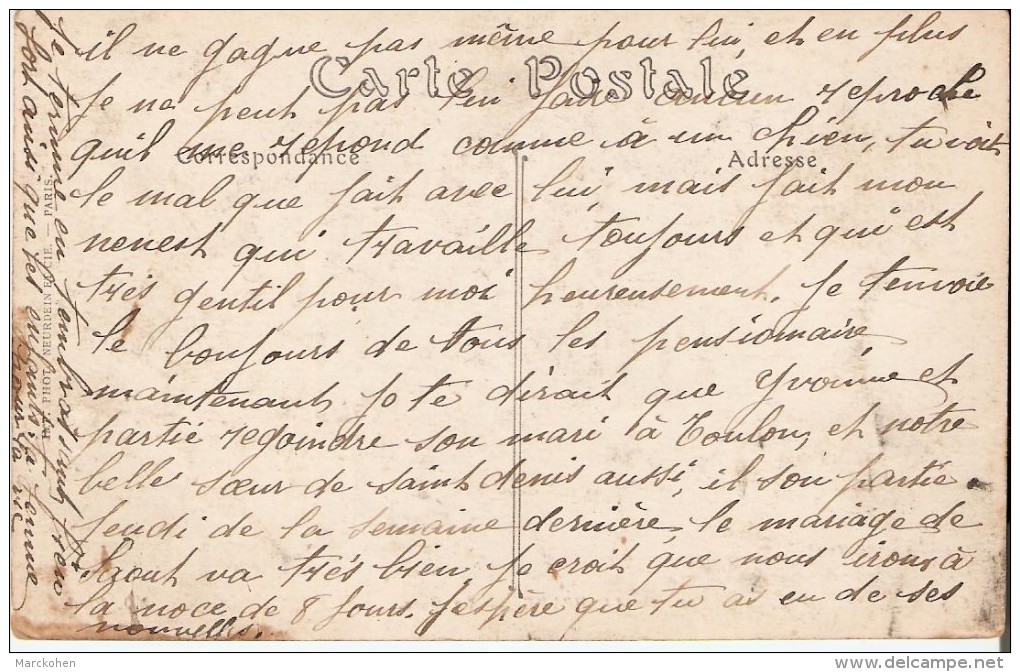 il ne gagne pas même pour lui, et en plus
Carte Postale
je ne peut pas lui faire aucun reproche
quil me repond comme à un chien, tu voit
Correspondance
Adresse
le mal que fait avec lui, mais fait mon
nenest qui travaille toujours et qui est
très gentil pour moi heureusement. Je t'envoie
le boujours de tous les pensionnaire
maintenant je te dirait que Yvonne et
partie rejoindre son mari à Toulon, et notre
belle sœur de saint denis aussi, il son partie
jeudi de la semaine dernière, le mariage de
va très bien, je croit que nous irons à
la noce de 8 jours. J'espère que tu as eu de ses
nouvelles.
je termine en t'embrassant bien
fort ainsi que tes enfants ta femme
pour la vie
PHOT. NEURDEIN ET CIE. — PARIS.
Marckohen
delcampe.net